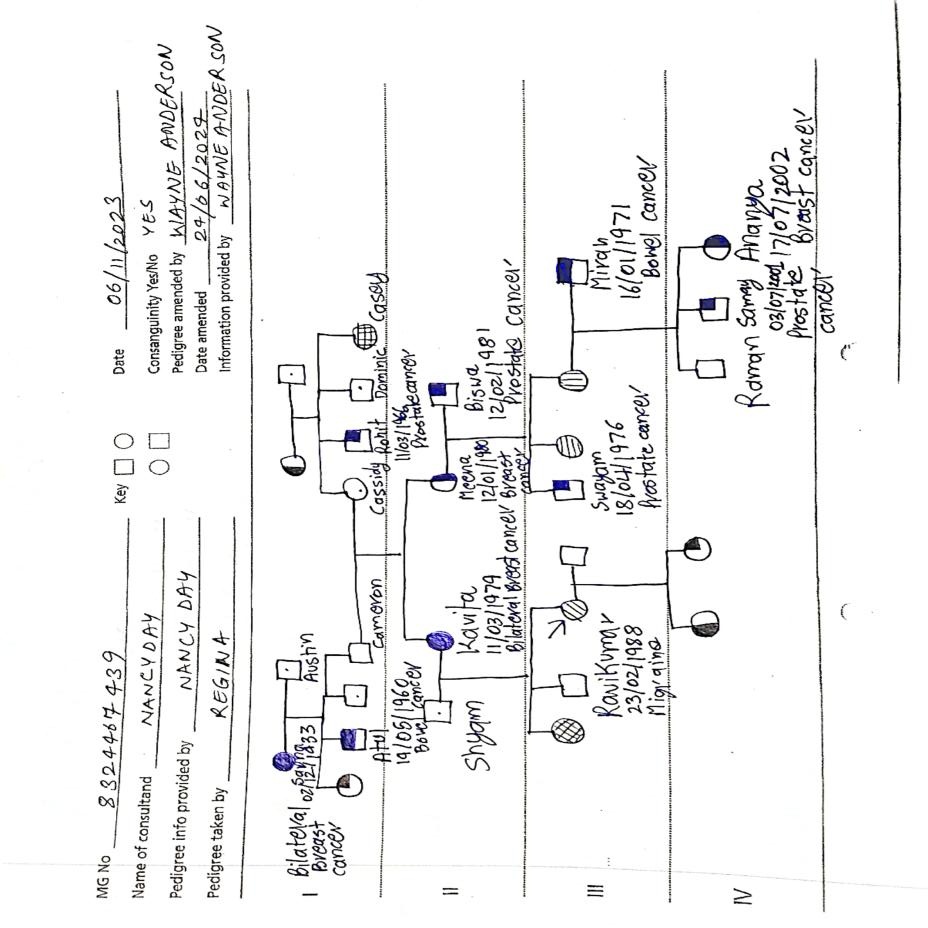 MG No 8324467439
Name of consultand NANCY DAY
Pedigree info provided by NANCY DAY
Pedigree taken by REGINA
Key
Date 06/11/2023
Consanguinity Yes/No YES
Pedigree amended by WAYNE ANDERSON
Date amended 24/06/2024
Information provided by WAYNE ANDERSON
I
Bilateral
Breast
cancer
Austin
Atul
19/05/1960
Bowel cancer
Cameron
Cassidy
Rohit
11/03/1966
Prostate cancer
Dominic
Casey
II
Shyam
Kavita
11/03/1979
Bilateral Breast cancer
Meena
12/01/1980
Breast
cancer
Biswa
12/02/1981
Prostate cancer
III
Ravikumar
23/02/1988
Migraine
Swayam
18/04/1976
Prostate cancer
Mirah
16/01/1971
Bowel cancer
IV
Raman
Samay
Prostate
cancer
Ananya
17/07/2002
Breast cancer